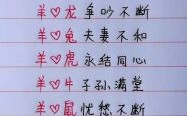 羊♡龙争吵不断
羊♡兔夫妻不和
羊♡虎永结同心
羊♡牛子孙满堂
羊♡鼠忧愁不断